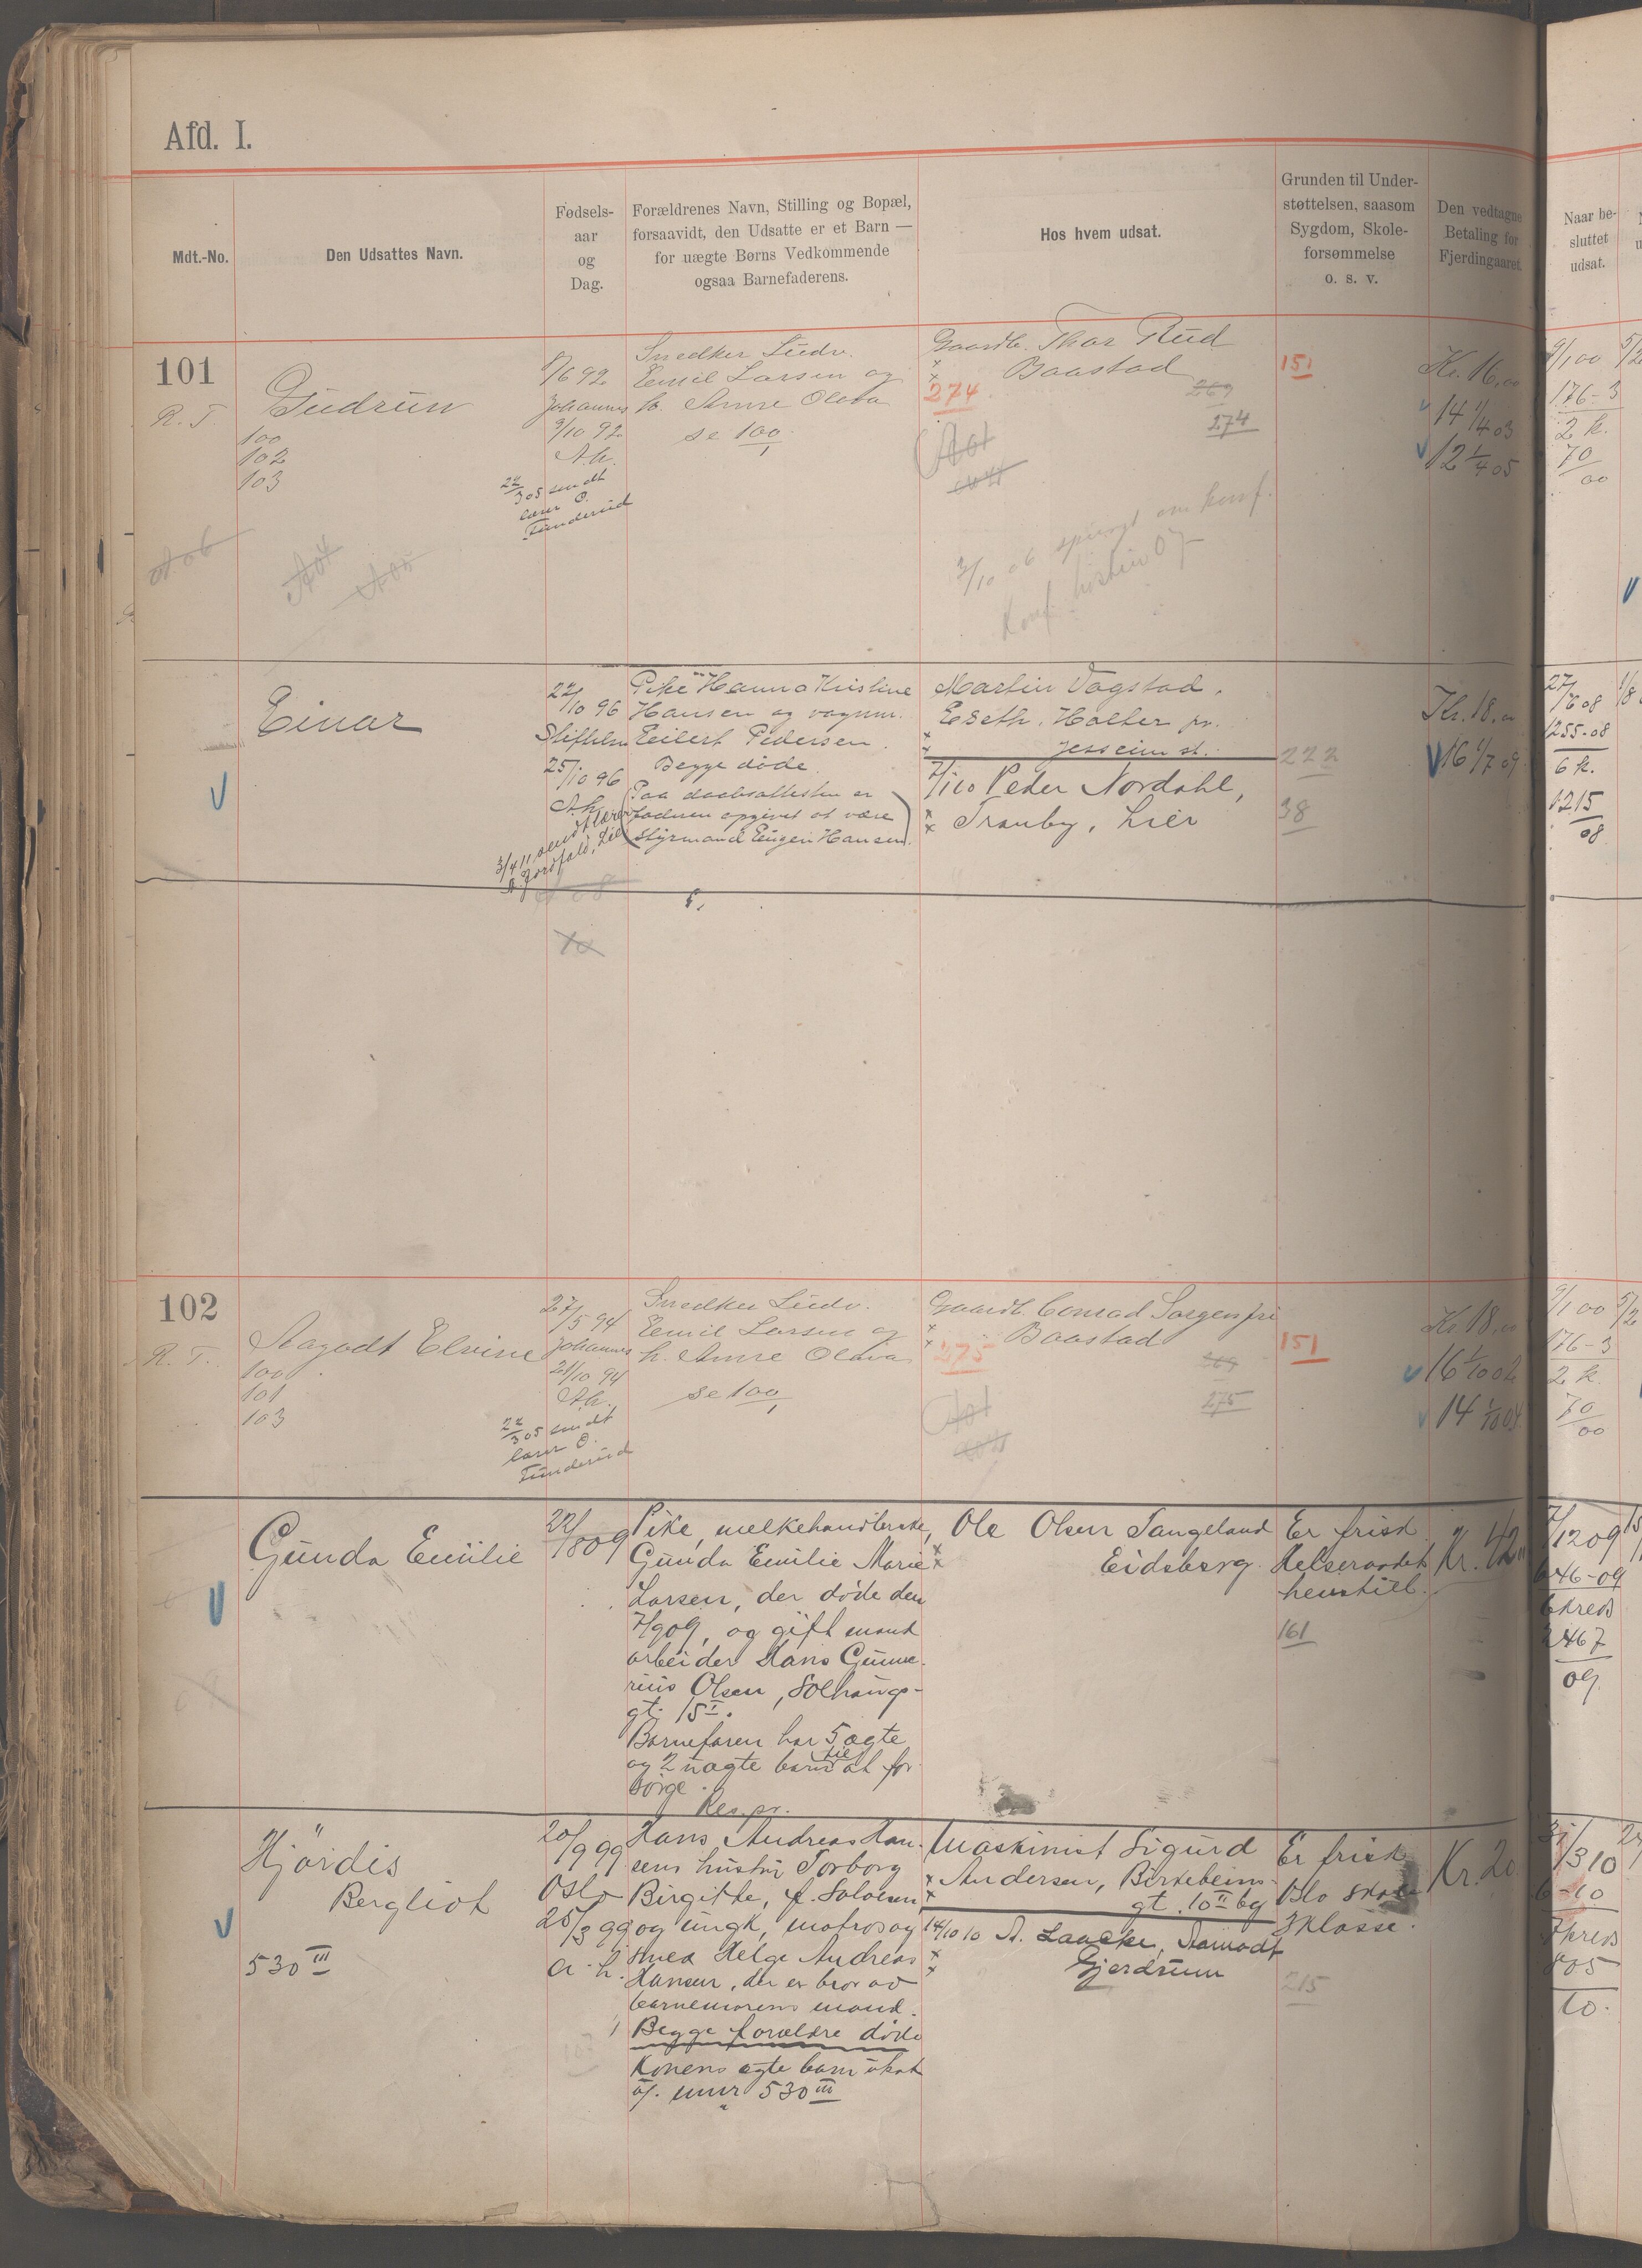 Afd. I.
Mdt.-No.
Den Udsattes Navn.
Fødsels-
aar
og
Dag.
Forældrenes Navn, Stilling og Bopæl,
forsaavidt, den Udsatte er et Barn —
for uægte Børns Vedkommende
ogsaa Barnefaderens.
Hos hvem udsat.
Grunden til Under-
støttelsen, saasom
Sygdom, Skole-
forsømmelse
o. s. v.
Den vedtagne
Betaling for
Fjerdingaaret.
Naar be-
sluttet
udsat.
101
R. T.
Gudrun
100
102
103
8/6 92
Johannes
9/10 92
A.h.
22/3 05 sendt
lærer O.
Tunderud
Snedker Ludv.
Emil Larsen og
h. Anne Olava
se 100
Gaardb. Thor Rud
Baastad
274
269
274
3/10 06 spurgt om konf.
Konf. høsten 07
151
Kr. 16,00
14 1/4 03
12 1/4 05
9/1 00
176-3
2 k.
70
00
Einar
22/10 96
25/10 96
A.h.
3/4 11 sendt lærer
Pike Hanna Kristine
Hansen og vognm.
Eilert Pedersen.
Begge døde.
(Paa daabsattesten er
faderen opgivet at være
styrmand Eugen Hansen.)
Martin Vagstad,
Holter pr.
Jesseim st.
7/1 10 Peder Nordahl,
Tranby, Lier
222
38
Kr. 18,00
16 1/7 09
27/6 08
1255-08
6 k.
1215
08
102
R. T.
Aagodt Elvine
100
101
103
27/5 94
Johannes
21/10 94
A.h.
22/3 05 sendt
lærer O.
Tunderud
Snedker Ludv.
Emil Larsen og
h. Anne Olava
se 100
Gaardb. Conrad Sorgenfri
Baastad
275
269
275
151
Kr. 18,00
16 1/10 02
14 1/10 04
9/1 00
176-3
2 k.
70
00
Gunda Emilie
22/8 09
Pike, melkehandlerske,
Gunda Emilie Marie
Larsen, der døde den
7/9 09, og gift mand
arbeider Hans Gunne-
rius Olsen, Solhaugs-
gt. 15 I.
Barnefaren har 5 ægte
og 2 uægte barn til at for-
sørge.
Res. pr.
Ole Olsen Tangeland
Eidsberg.
Er frisk.
Helseraadets
henstill.
161
Kr. 42
7/12 09
646-09
6 kreds
2467
09
Hjørdis
Bergliot
530 III
20/9 99
Oslo
25/3 99
a. h.
Hans Andreas Han-
sens hustru Torborg
Birgitte, f. Solvesen
og ungk, matros og
smed Helge Andreas
Hansen, der er bror av
barnemorens mand.
Begge forældre døde
Konens ægte barn utsat
u/. mnr 530 III
Maskinist Sigurd
Andersen, Birkebeiner-
gt. 10 II bg
14/10 10 A. Laache, Aamodt
Gjerdrum
Er frisk
Oslo skole
3 klasse.
215
Kr. 20
3/3 10
6-10
7 kreds
805
10.